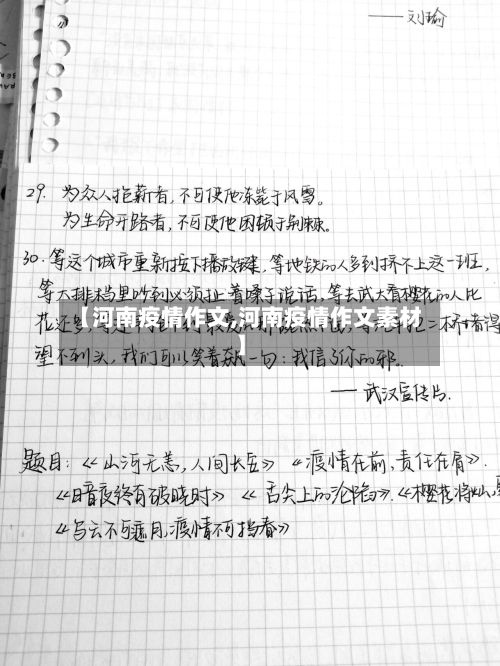 ——刘瑜
29. 为众人抱薪者,不可使他冻毙于风雪。
为生命开路者,不可使他困顿于荆棘。
30. 等这个城市重新按下播放键,等地铁的人多到挤不上这一班,
等大排档里吵到必须扯着嗓子说话,等去武大看樱花的人比
花还多
【河南疫情作文,河南疫情作文素材
】
望不到头,我们可以笑着飙一句:我信了你的邪。
——武汉宣传片.
题目:《山河无恙,人间长安》《疫情在前,责任在肩》.
《暗夜终有破晓时》《舌尖上的沦陷》.《樱花将灿,
《乌云不可遮月,疫情不可挡春》